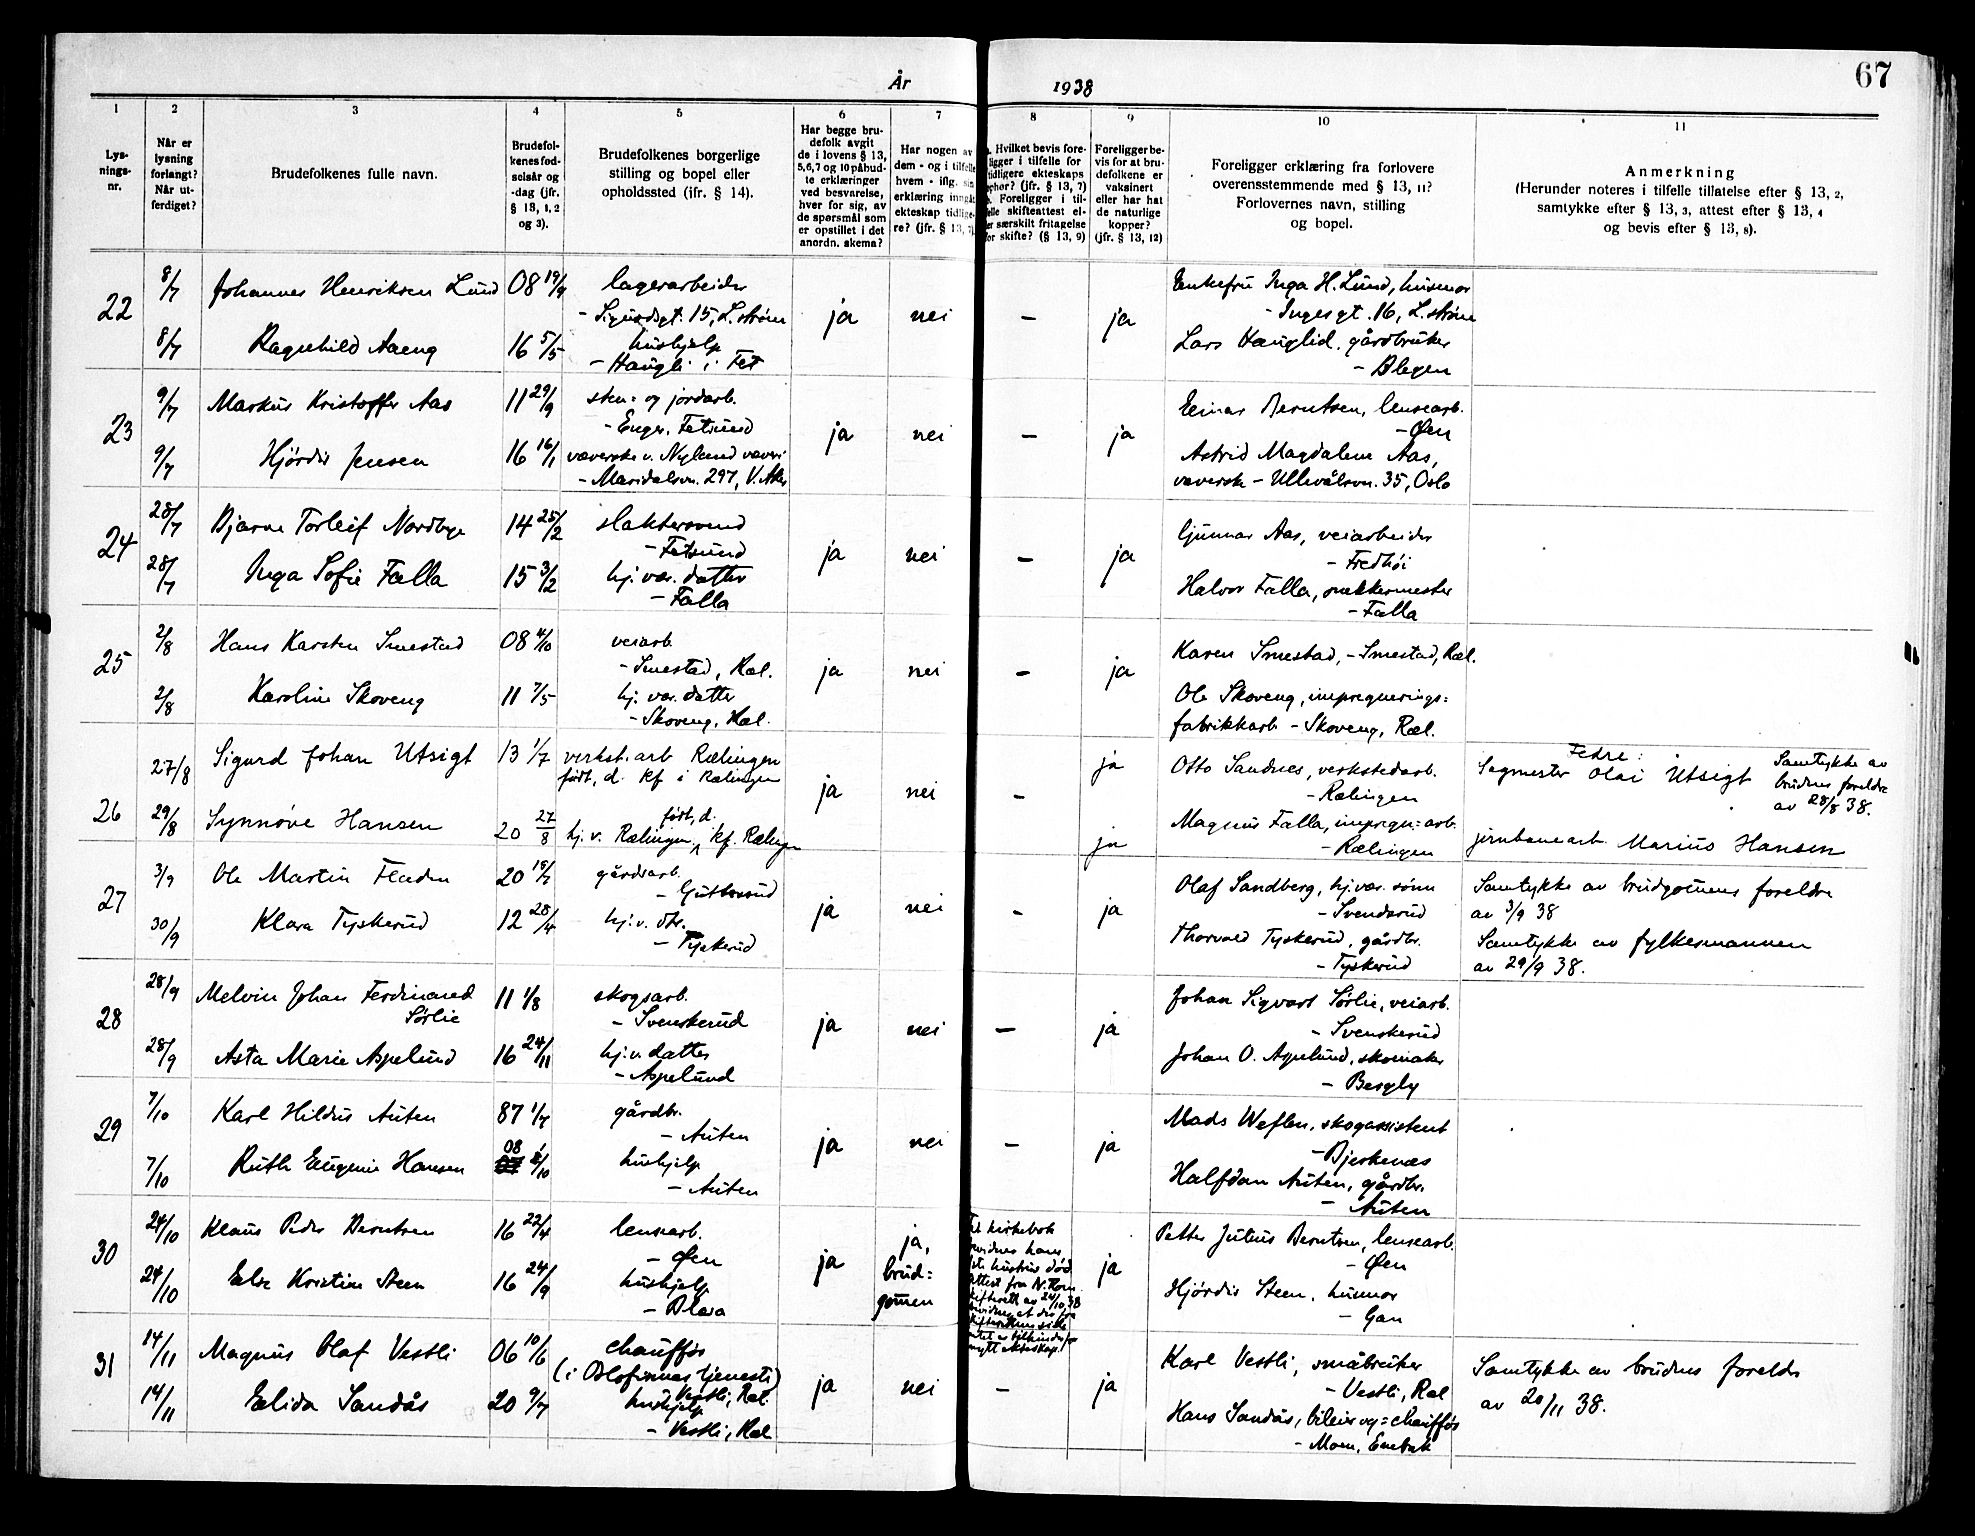 År 1938
67
1 2 3 4 5 6 7 8 9 10 11
Lys-
nings-
nr.
Når er
lysning
forlangt?
Når ut-
ferdiget?
Brudefolkenes fulle navn.
Brudefol-
kenes fød-
selsår og
-dag (jfr.
§ 13, 1, 2
og 3).
Brudefolkenes borgerlige
stilling og bopel eller
opholdssted (ifr. § 14).
Har begge bru-
defolk avgit
de i lovens § 13,
5,6,7 og 10 påbud-
te erklæringer
ved besvarelse,
hver for sig, av
de spørsmål som
er opstillet i det
anordn. skema?
Har nogen av
dem - og i tilfelle
hvem - iflg. sin
erklæring inngåt
ekteskap tidlige-
re? (jfr. § 13, 7).
Hvilket bevis fore-
ligger i tilfelle for
tidligere ekteskaps
ophør? (jfr. § 13, 7)
Foreligger i til-
felle skifteattest el-
er særskilt fritagelse
for skifte? (§ 13, 9)
Foreligger be-
vis for at bru-
defolkene er
vaksinert
eller har hat
de naturlige
kopper?
(jfr. § 13, 12)
Foreligger erklæring fra forlovere
overensstemmende med § 13, 11?
Forlovernes navn, stilling
og bopel.
Anmerkning
(Herunder noteres i tilfelle tillatelse efter § 13, 2,
samtykke efter § 13, 3, attest efter § 13, 4
og bevis efter § 13, 8).
22 8/7 Johannes Henriksen Lund 08 19/9 lagerarbeider ja nei – ja Enkefru Inga H. Lund, husmor
- Sigurdsgt. 15, L.strøm - Ingesgt. 16, L.strøm
8/7 Ragnhild Aaeng 16 5/5 hushjelp Lars Hauglid, gårdbruker
- Haugli i Fet
23 9/7 Markus Kristoffer Aas 11 29/9 sten- og jordarb. ja nei – ja Einar Berntsen, lensearb.
- Enger, Fetsund - Øen
9/7 Hjørdis Jensen 16 16/1 væverske v. Nylund væveri Astrid Magdalene Aas,
- Maridalsvn. 297, V. Aker væversk - Ullevålsvn. 35, Oslo
24 28/7 Bjarne Torleif Nordbye 14 25/2 slaktersvend ja nei – ja Gunnar Aas, veiarbeider
- Fetsund - Fredhøi
28/7 Inga Sofie Falla 15 3/2 hj. vær. datter Halvor Falla, snekkermester
- Falla - Falla
25 2/8 Hans Karsten Smestad 08 4/10 veiarb. ja nei – ja Karen Smestad, - Smestad, Ræl.
- Smestad, Ræl.
2/8 Karoline Skoveng 11 7/5 hj. vær. datter Ole Skoveng, impregnerings-
- Skoveng, Ræl. fabrikkarb - Skoveng, Ræl.
26 27/8 Sigurd Johan Utsigt 13 1/7 verkst. arb Rælingen ja nei – ja Otto Sandnes, verkstedarb. Fedre:
født, d. kf i Rælingen - Rælingen Sagmester Olai Utsigt Samtykke av
brudens foreldre
av 28/8 38.
29/8 Synnøve Hansen 20 27/8 født, d.
hj. v. Rælingen, kf. Rælingen ja Magnus Falla, impregn.-arb.
- Rælingen jernbanearb. Marius Hansen
27 3/9 Ole Martin Fladen 20 gårdsarb. ja nei - ja Olaf Sandberg, hj. vær. sønn Samtykke av brudgomens foreldre
- Svenderud av 3/9 38
30/9 Klara Tyskerud 12 28/4 hj. v. dtr. Thorvald Tyskerud, gårdbr. Samtykke av fylkesmannen
- Tyskerud - Tyskerud av 29/9 38.
28 28/9 Melvin Johan Ferdinand 11 1/8 skogsarb. ja nei – ja Johan Sigvart Sørlie, veiarb.
Sørlie - Svenskerud - Svenskerud
28/9 Asta Marie Aspelund 16 24/11 hj. v. datter Johan O. Aspelund, skomaker
- Aspelund - Bergly
29 7/10 Karl Hildus Auten 87 1/7 gårdbr. ja nei – ja Mads Weflen, skogassistent
- Auten - Bjerkenæs
7/10 Ruth Eugenie Hansen 08 hushjelp Halfdan Auten, gårdbr.
- Auten - Auten
30 24/10 Klaus Peder Berntsen 16 22/4 lensearb. ja ja, brud-
gomen ja Petter Julius Berntsen, lensearb.
- Øen - Øen
24/10 Else Kristine Steen 16 24/9 hushjelp Hjørdis Steen, husmor
- Gan
kirkebok
hans
hustrus død
attest fra N. Rom.
skifterett av 24/10 38
nytt ekteskap.
31 14/11 Magnus Olaf Vestli 06 10/6 chauffør ja nei – ja Karl Vestli, småbruker Samtykke av brudens foreldr
- Vestli, Ræl. - Vestli, Ræl av 20/11 38.
14/11 Elida Sandås 20 9/7 hushjelp Hans Sandås, bileier og chauffør
- Vestli, Ræl - Moen, Enebak